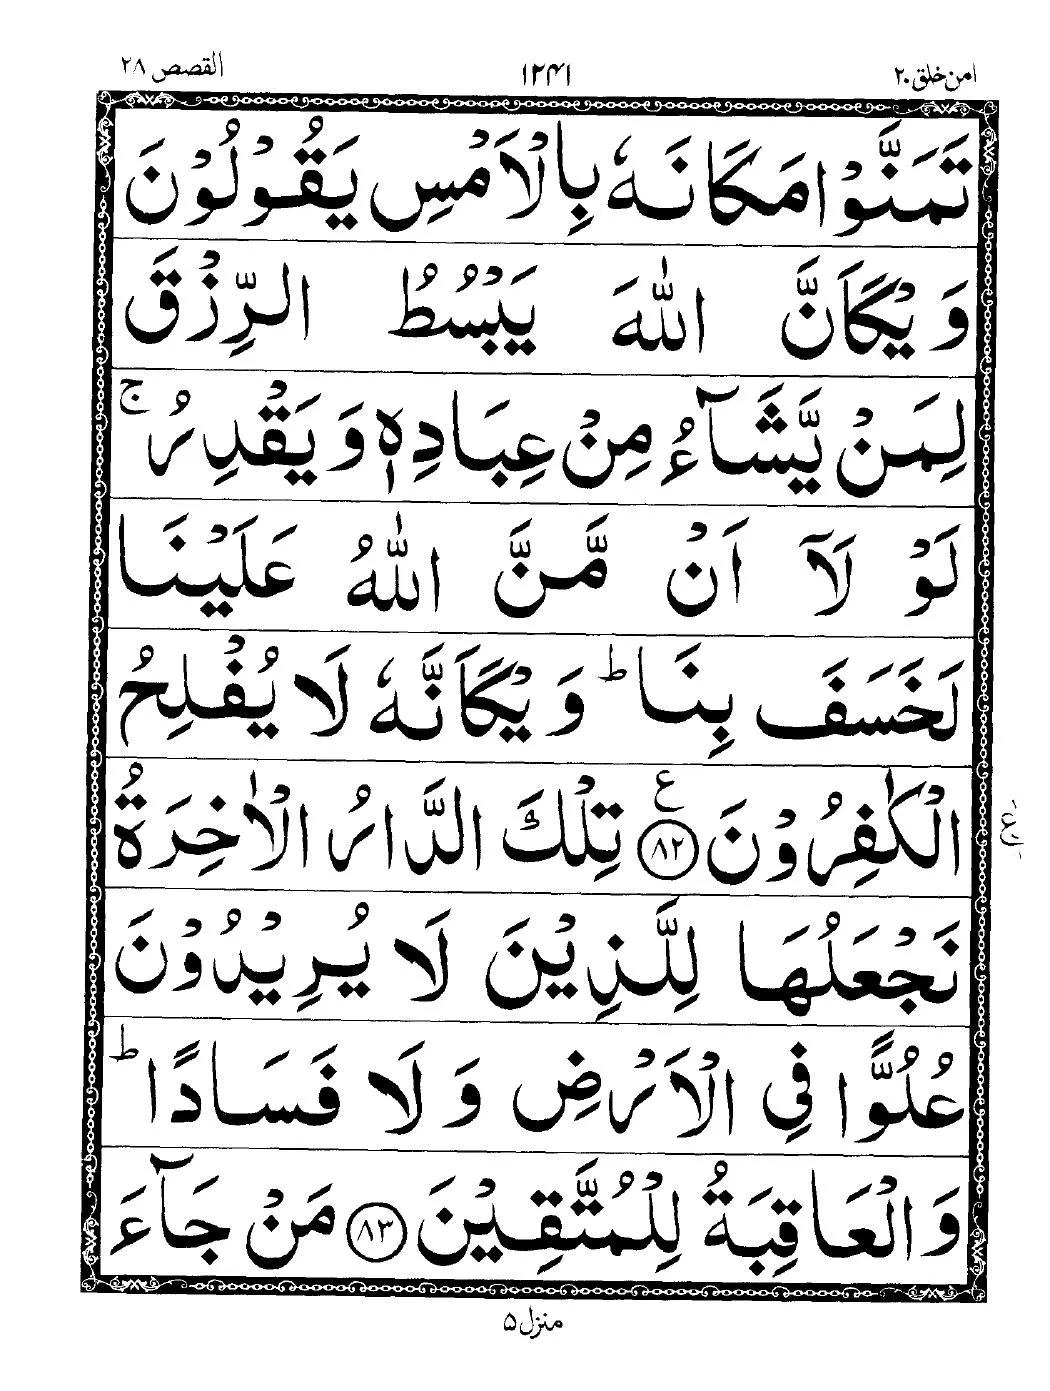 امن خلق ۲۰
۱۲۴۱
القصص ۲۸
تَمَنَّوْا مَكَانَهٗ بِالْاَمْسِ يَقُوْلُوْنَ
وَيْكَاَنَّ اللّٰهَ يَبْسُطُ الرِّزْقَ
لِمَنْ يَّشَآءُ مِنْ عِبَادِهٖ وَيَقْدِرُ ۚ
لَوْ لَاۤ اَنْ مَّنَّ اللّٰهُ عَلَيْنَا
لَخَسَفَ بِنَا ؕ وَيْكَاَنَّهٗ لَا يُفْلِحُ
الْكٰفِرُوْنَ ۸۲ ع تِلْكَ الدَّارُ الْاٰخِرَةُ
ع
نَجْعَلُهَا لِلَّذِيْنَ لَا يُرِيْدُوْنَ
عُلُوًّا فِي الْاَرْضِ وَلَا فَسَادًا ؕ
وَالْعَاقِبَةُ لِلْمُتَّقِيْنَ ۸۳ مَنْ جَآءَ
منزل ۵